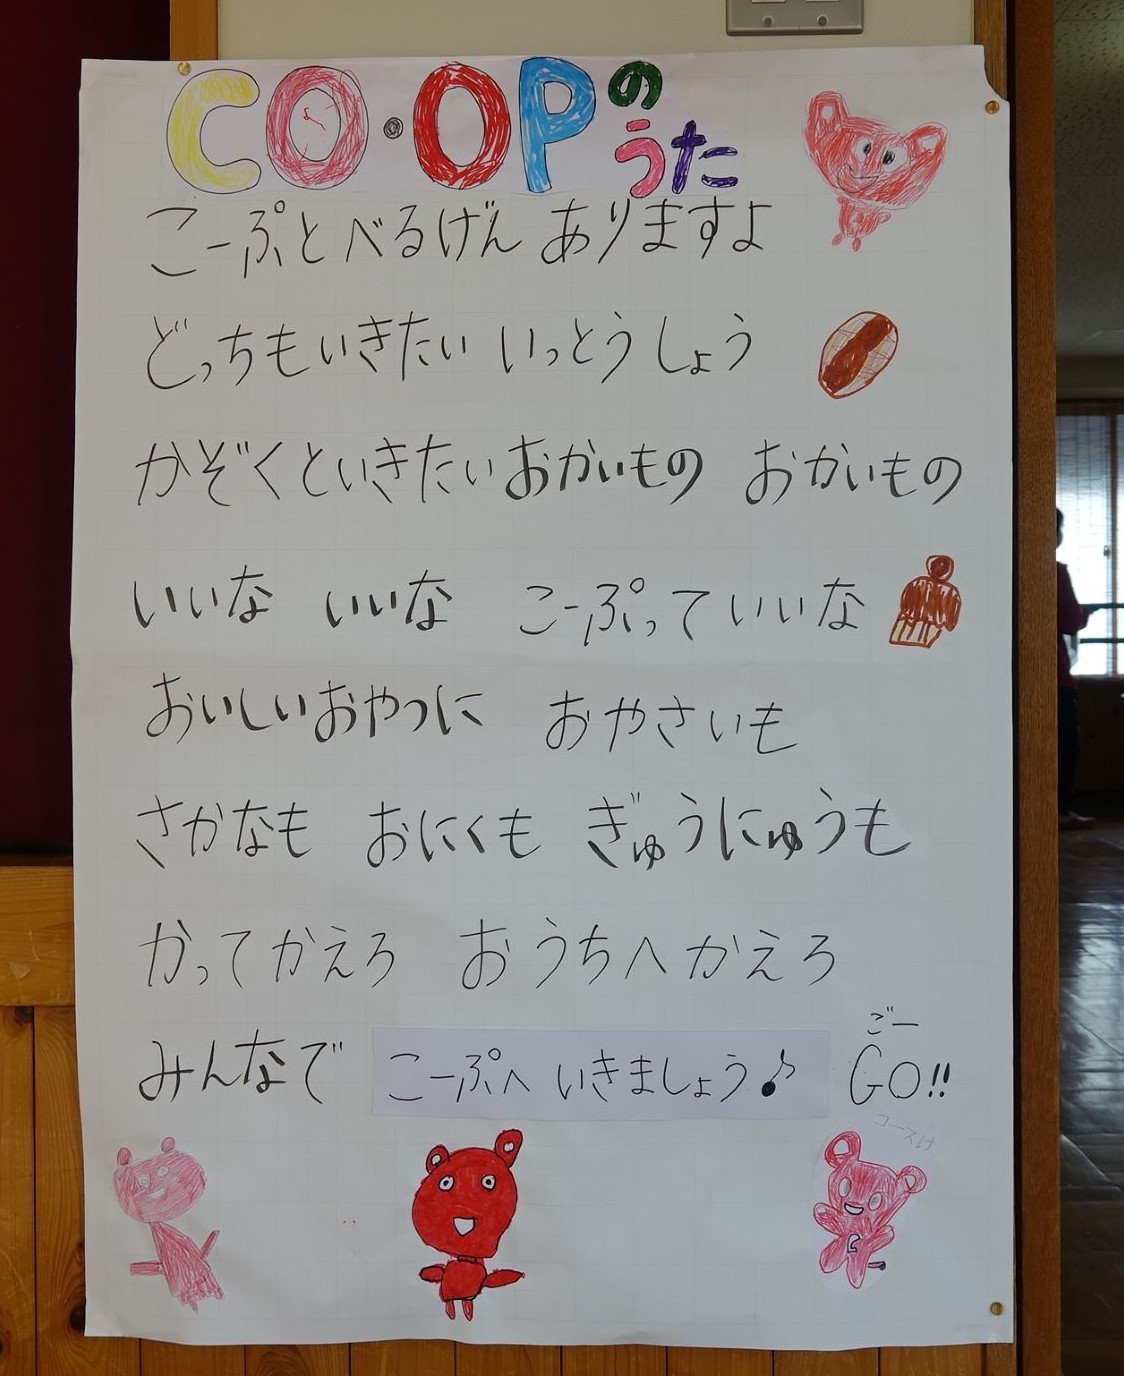 CO・OPのうた
こーぷとべるげん ありますよ
どっちもいきたい いっとうしょう
かぞくといきたいおかいもの おかいもの
いいな いいな こーぷっていいな
おいしいおやつに おやさいも
さかなも おにくも ぎゅうにゅうも
かってかえろ おうちへかえろ
みんなで こーぷへ いきましょう♪ ごー GO!!